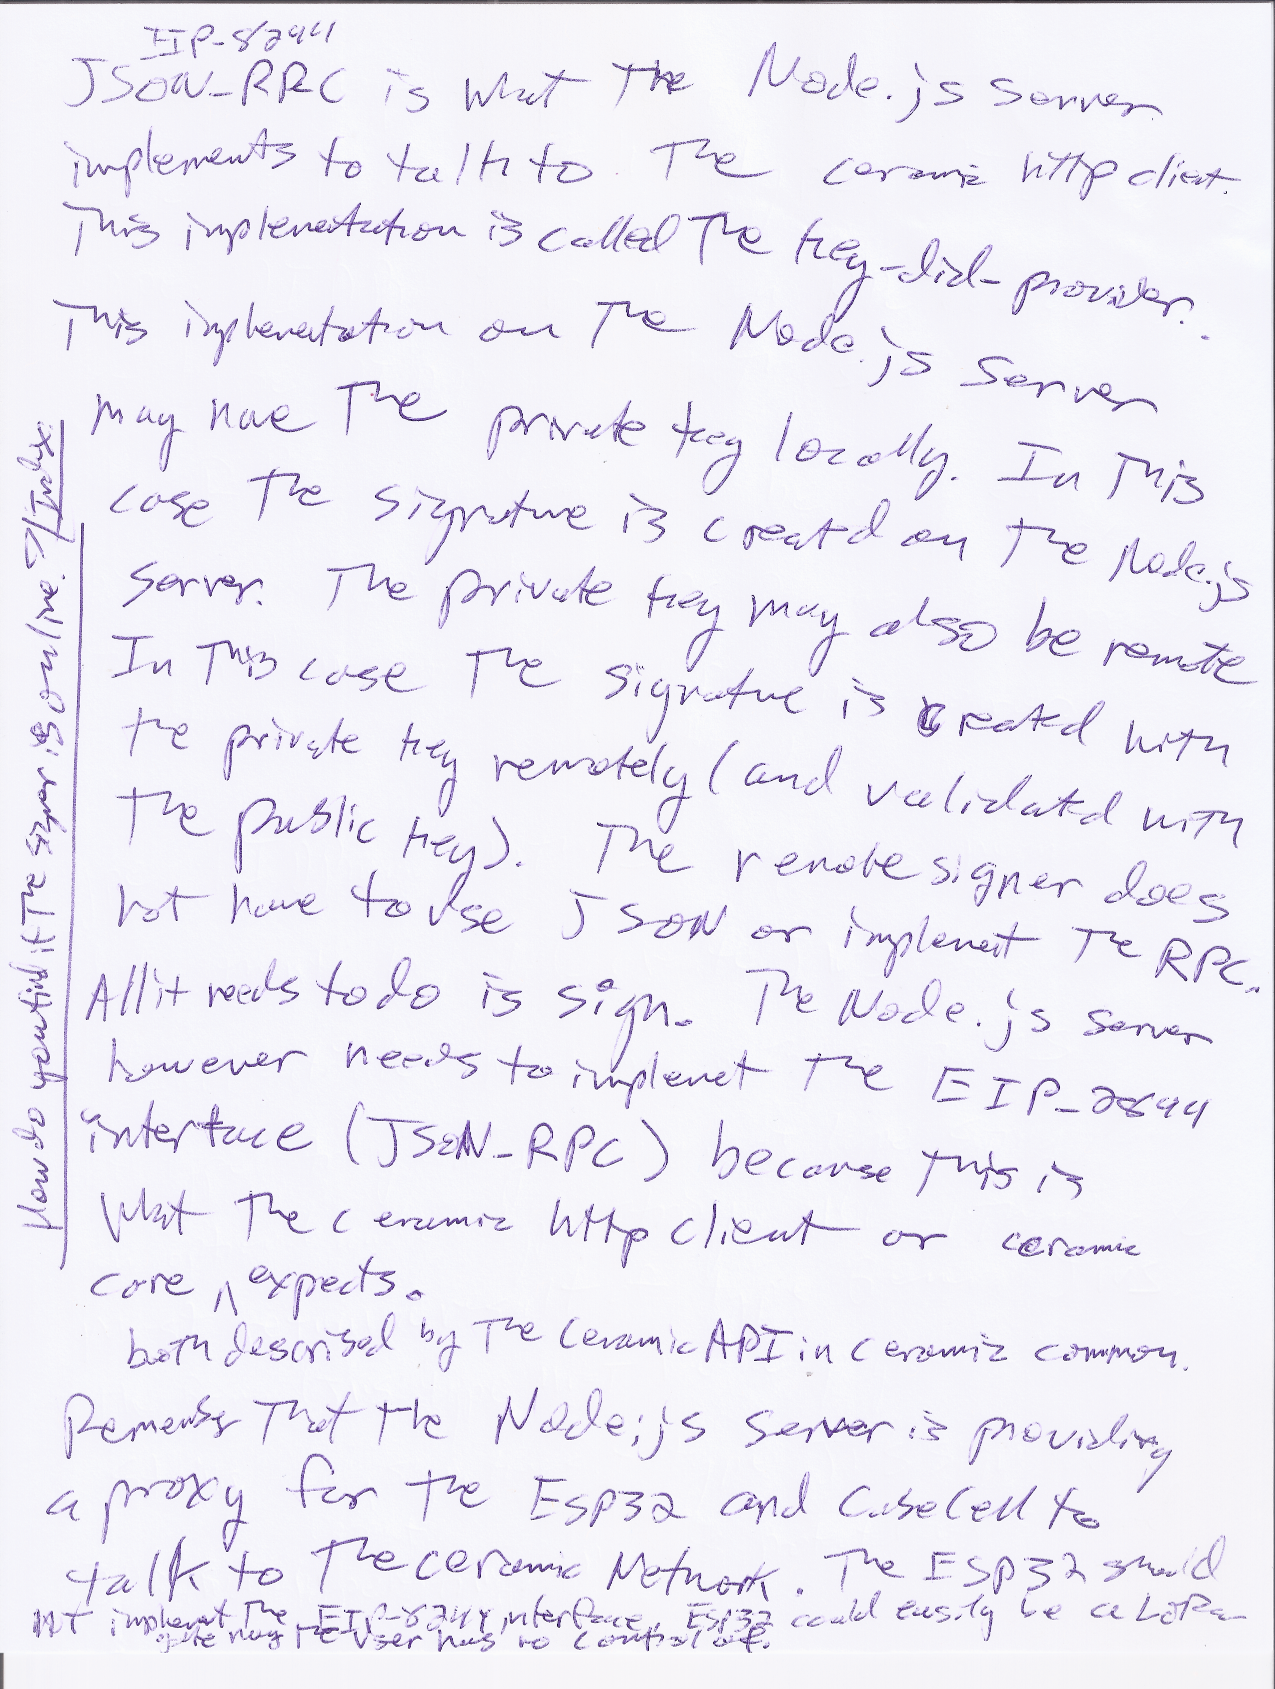 EIP-8294
JSON-RPC is what the Node.js server
implements to talk to the ceramic http client.
This implementation is called the key-did-provider.
This implementation on the Node.js server
may have the private key locally. In this
case the signature is created on the Node.js
server. The private key may also be remote
In this case the signature is created with
the private key remotely (and validated with
the public key). The remote signer does
not have to use JSON or implement the RPC.
All it needs to do is sign. The Node.js server
however needs to implement the EIP-2844
interface (JSON-RPC) because this is
what the ceramic http client or ceramic
core ^ expects.
both described by the Ceramic API in ceramic common.
Remember that the Node.js server is providing
a proxy for the ESP32 and CubeCell to
talk to the ceramic Network. The ESP32 should
not implement the EIP-8244 interface. ESP32 could easily be a LoRa
gateway the user has no control of.
How do you find if the signer is online?/Index